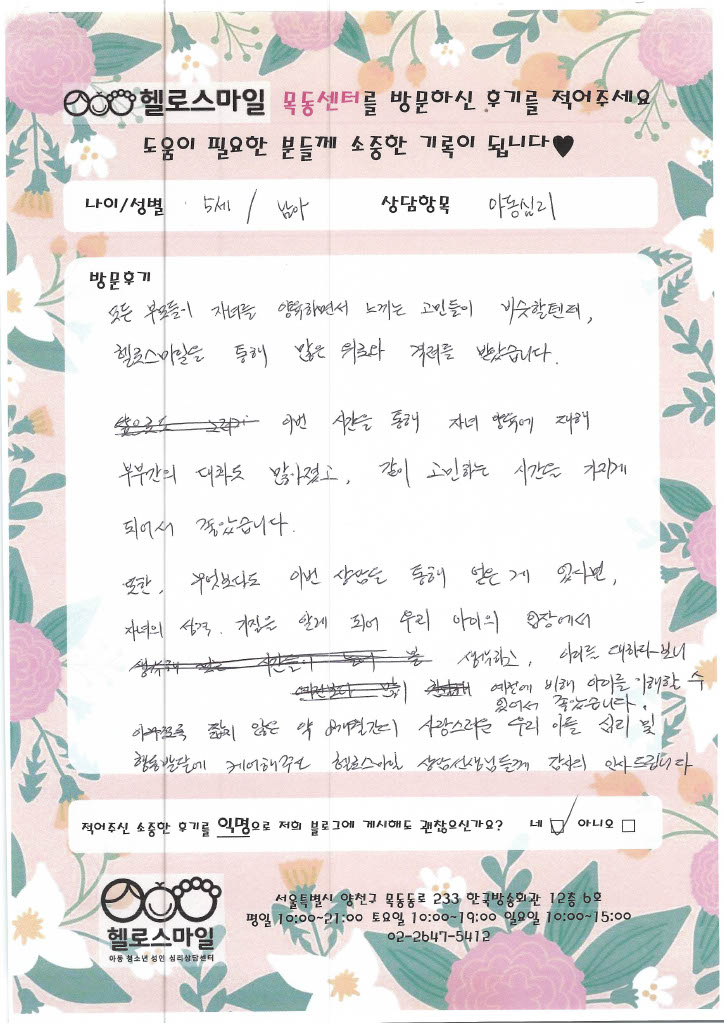 헬로스마일 목동센터를 방문하신 후기를 적어주세요
도움이 필요한 분들께 소중한 기록이 됩니다♥
나이/성별 5세 / 남아 상담항목 아동심리
방문후기
모든 부모들이 자녀를 양육하면서 느끼는 고민들이 비슷할텐데,
헬로스마일을 통해 많은 위로와 격려를 받았습니다.
이번 시간을 통해 자녀 양육에 대해
부부간의 대화도 많아졌고, 같이 고민하는 시간을 가지게
되어서 좋았습니다.
또한, 무엇보다도 이번 상담을 통해 얻은 게 있다면,
자녀의 성격, 기질을 알게 되어 우리 아이의 입장에서
생각하고, 아이를 대하다보니
예전에 비해 아이를 이해할 수
있어서 좋았습니다.
짧지 않은 약 사랑스러운 우리 아들 심리 및
행동발달에 케어해주신 헬로스마일 상담선생님들께 감사의 인사드립니다
적어주신 소중한 후기를 익명으로 저희 블로그에 게시해도 괜찮으신가요? 네 ☑ 아니오 □
헬로스마일
아동 청소년 성인 심리상담센터
서울특별시 양천구 목동동로 233 한국방송회관 12층 6호
평일 10:00~21:00 토요일 10:00~19:00 일요일 10:00~15:00
02-2647-5412